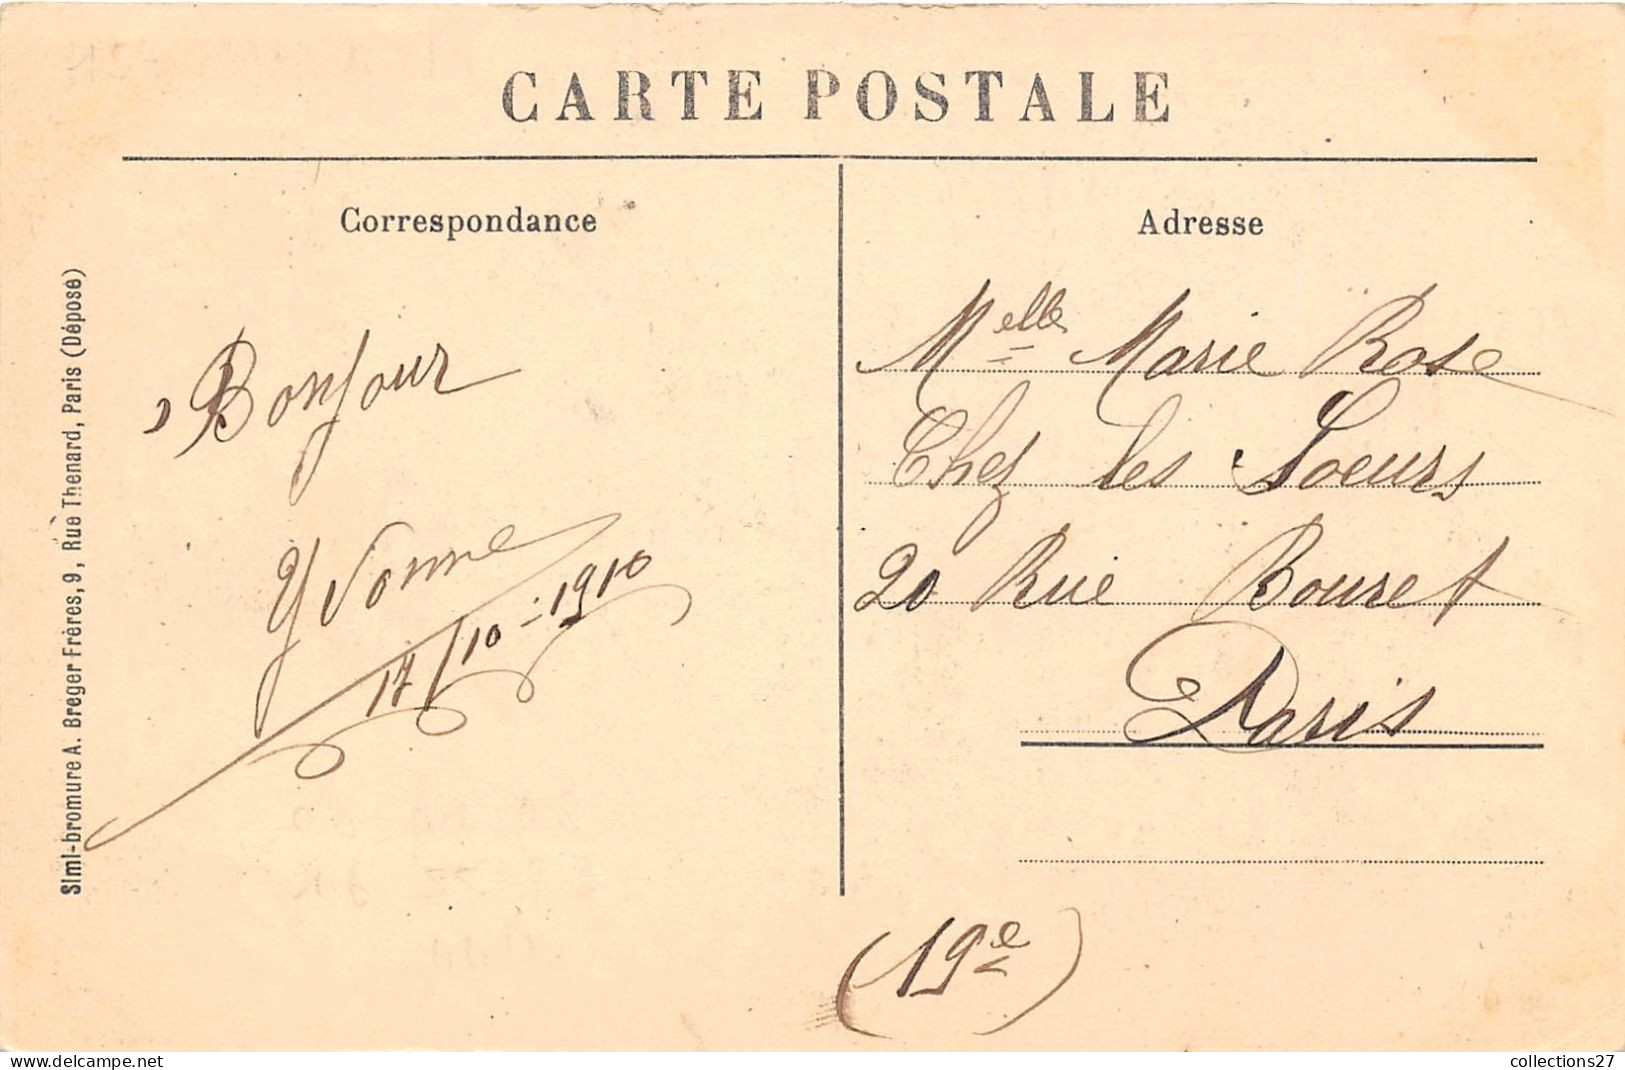 CARTE POSTALE
Correspondance
Adresse
Bonjour
Yvonne
17/10-1910
Melle Marie Rose
Chez les Soeurs
20 Rue Bouret
Paris
(19e)
Simi-bromure A. Breger Frères, 9, Rue Thenard, Paris (Déposé)
collections27